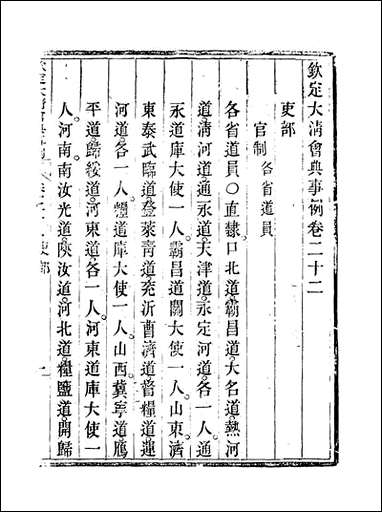 欽定大清會典事例卷二十二
吏部
官制各省道員
各省道員○直隸口北道霸昌道大名道熱河
道清河道通永道天津道永定河道各一人通
永道庫大使一人霸昌道關大使一人山東濟
東泰武臨道登萊青道兗沂曹濟道督糧道運
河道各一人糧道庫大使一人山西冀寧道鴈
平道歸綏道河東道各一人河東道庫大使一
人河南南汝光道陝汝道河北道糧鹽道開歸